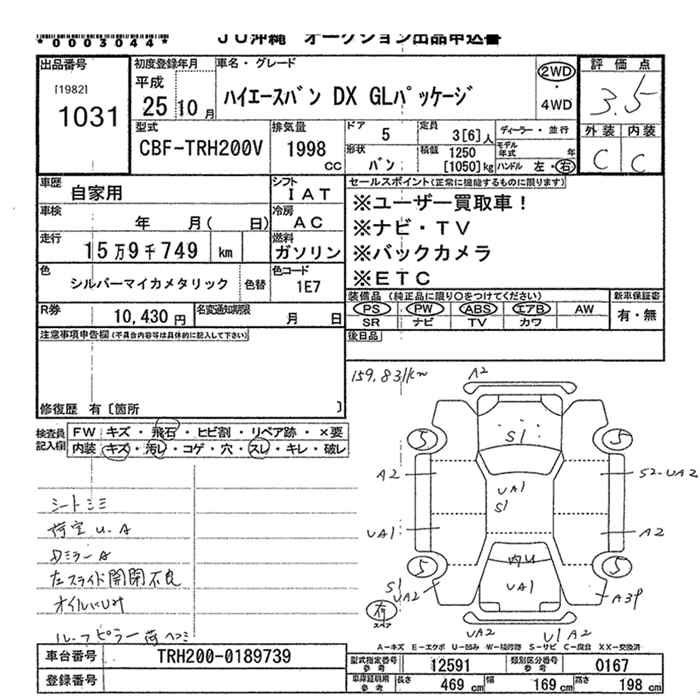 *0003044* ＪＵ沖縄 オークション出品申込書
出品番号
[1982]
1031
初度登録年月
平成
25 10 月
車名・グレード
ハイエースバン DX GLパッケージ
2WD
・
4WD
評価点
3.5
外装 内装
C C
型式
CBF-TRH200V
排気量
1998
CC
ドア 5
定員 3[6]人
ディーラー・並行
形状
バン
積載 1250
[1050]kg
モデル年式 年
ハンドル 左・右
車歴 自家用
シフト IAT
車検 年 月( 日)
冷房 AC
走行 15万9千749 km
燃料 ガソリン
色 シルバーマイカメタリック 色替
色コード 1E7
R券 10,430円
名変通知期限 月 日
セールスポイント(正常に機能するものに限ります)
※ユーザー買取車！
※ナビ・TV
※バックカメラ
※ETC
装備品 (純正品に限り○をつけてください)
新車保証書
PS PW ABS エアB AW
有・無
SR ナビ TV カワ
後日品
注意事項申告欄(不具合内容等は具体的に記入して下さい)
修復歴 有〔箇所 〕
検査員記入欄
FW キズ・飛石・ヒビ割・リペア跡・×要
内装 キズ・汚レ・コゲ・穴・スレ・キレ・破レ
シートシミ
荷室 U.A
Dミラー A
左スライド開閉不良
ルーフピラー荷ヘコミ
159.831km
A2
S1
5 5
A2
UA1
S1
S2-UA2
UA1
A2
5 5
内U
UA1
S1
UA2
A3P
有
スペア
UA2
U1 A2
A-キズ E-エクボ U-凹み W-補修跡 S-サビ C-腐食 XX-交換済
車台番号 TRH200-0189739
登録番号
型式指定番号 参考 12591
類別区分番号 参考 0167
車庫証明用 参考 長さ 469 cm 幅 169 cm 高さ 198 cm